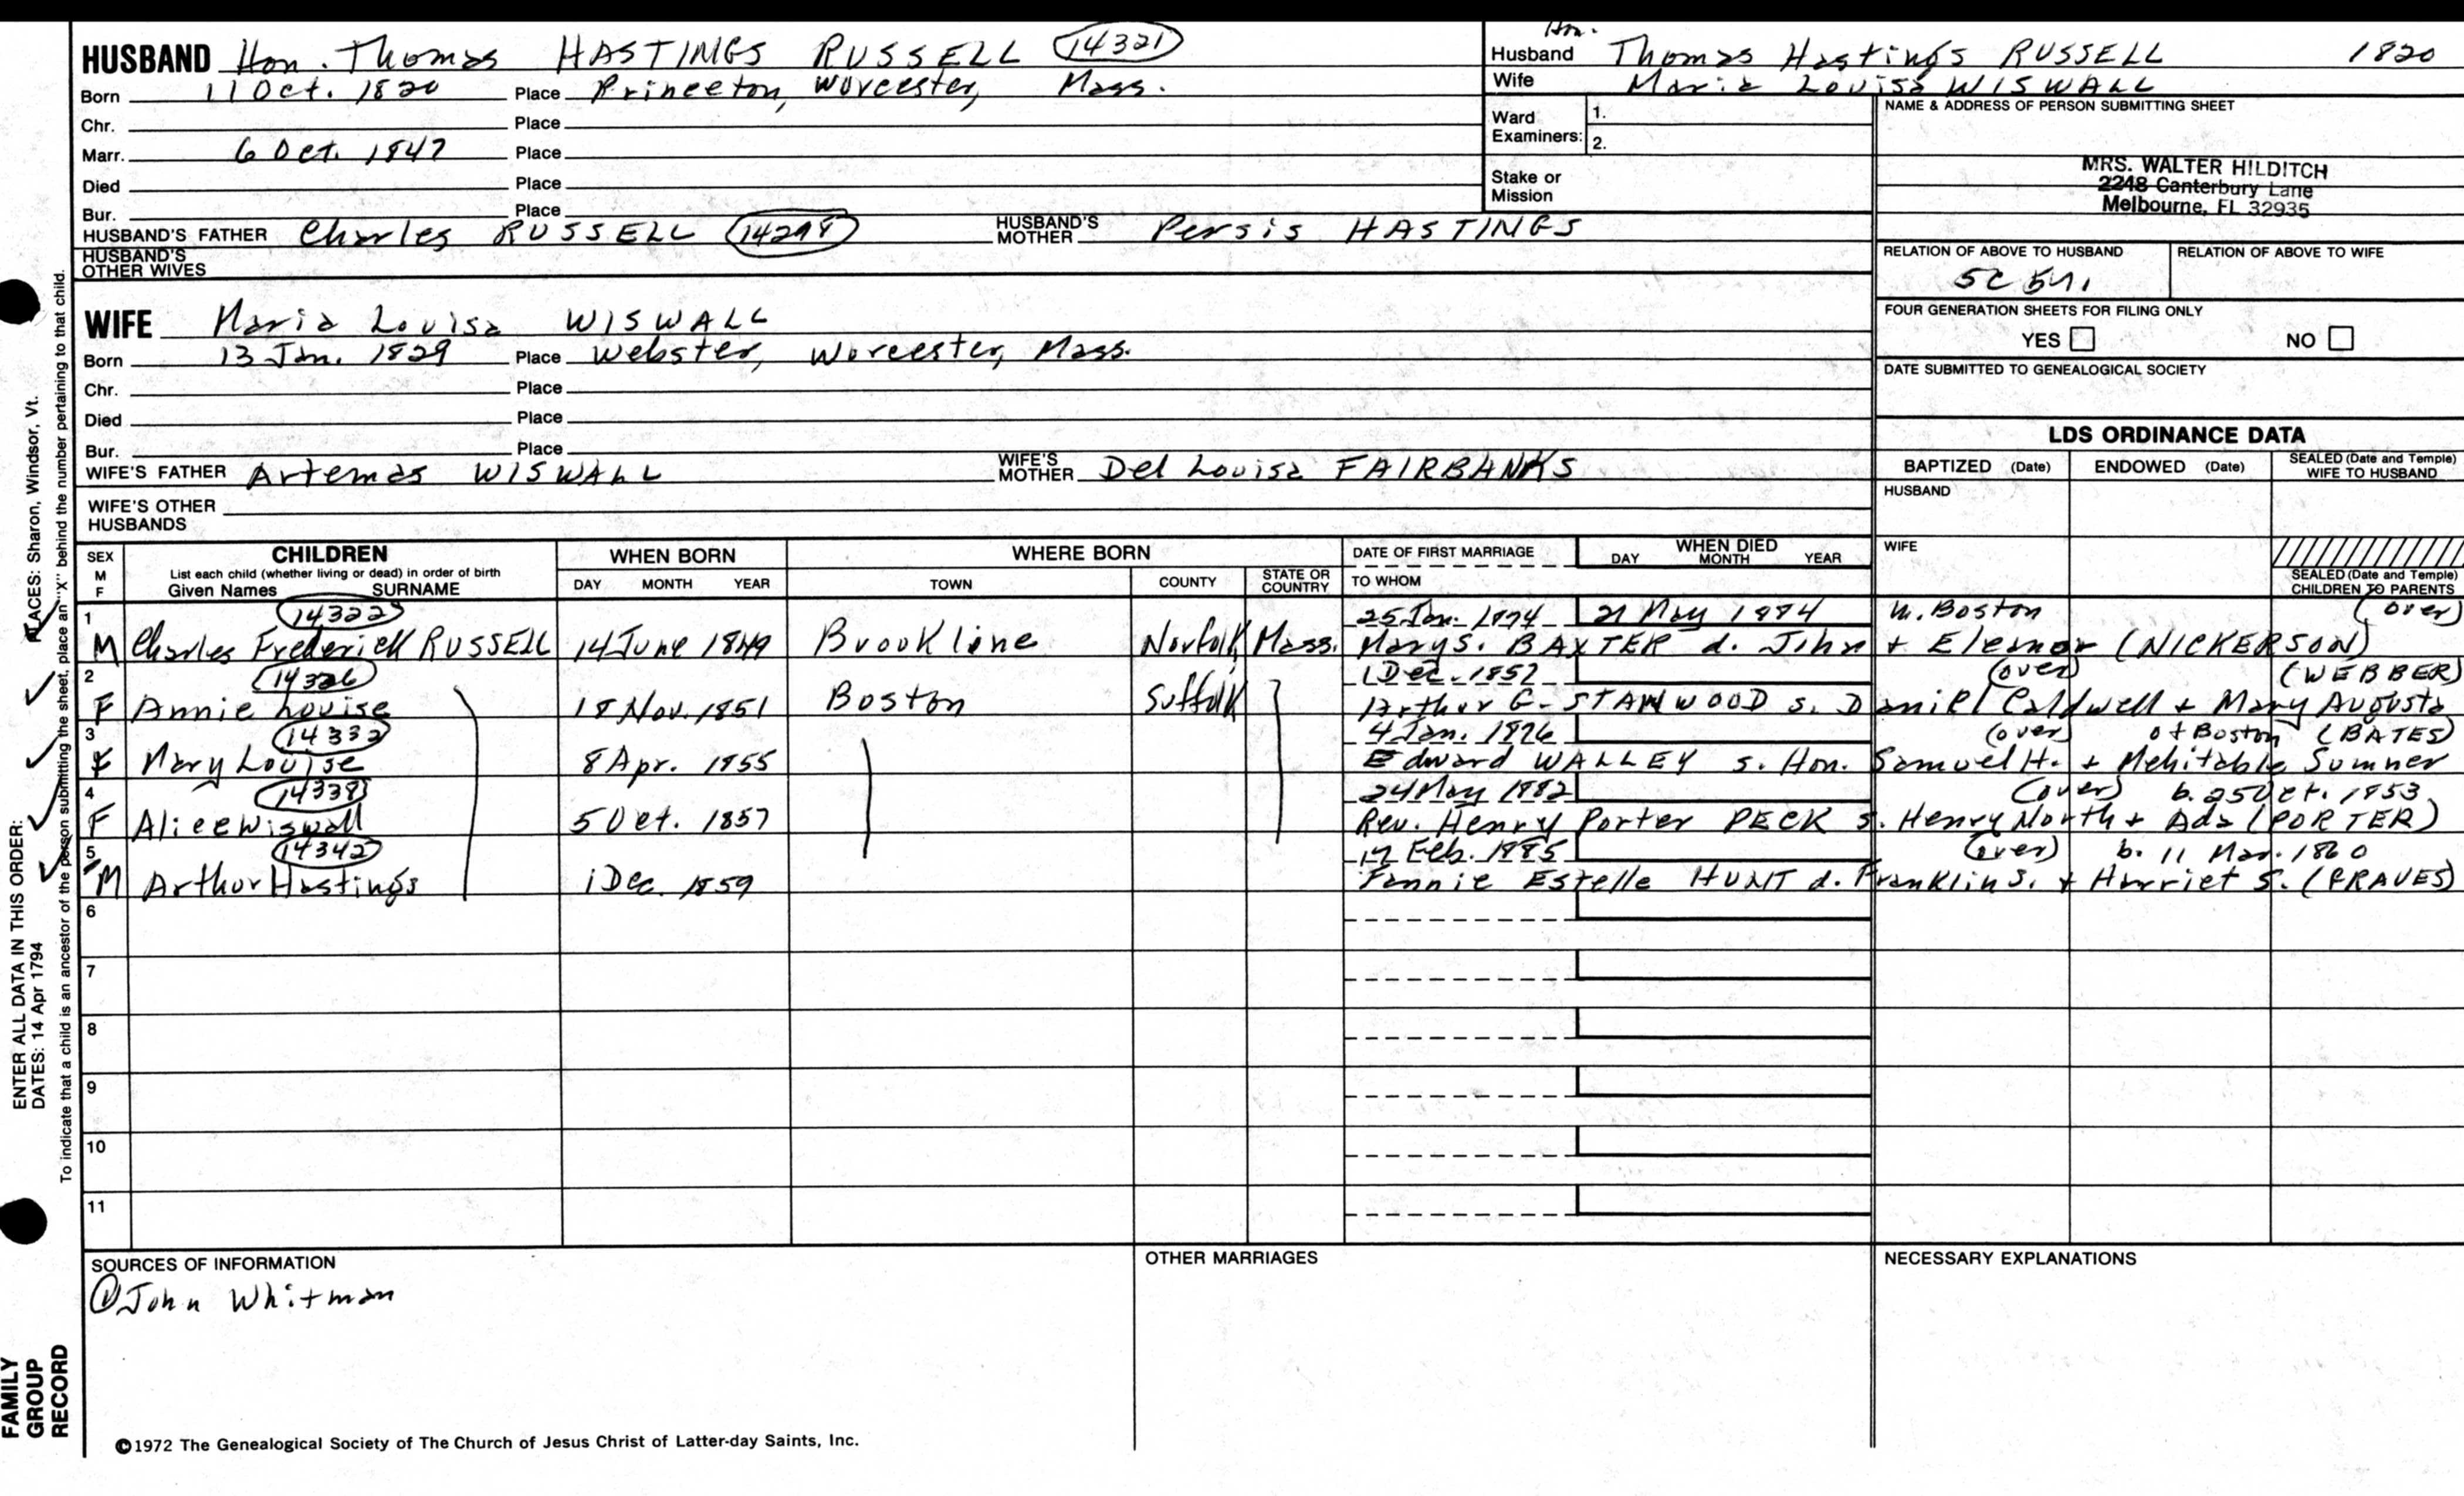 HUSBAND Hon. Thomas HASTINGS RUSSELL 14321
Born 11 Oct. 1820 Place Princeton, Worcester, Mass.
Chr. Place
Marr. 6 Oct. 1847 Place
Died Place
Bur. Place
HUSBAND'S FATHER Charles RUSSELL HUSBAND'S MOTHER Persis HASTINGS
HUSBAND'S OTHER WIVES
Hon.
Husband Thomas Hastings RUSSELL 1820
Wife Maria Louisa WISWALL
Ward Examiners: 1.
2.
Stake or Mission
NAME & ADDRESS OF PERSON SUBMITTING SHEET
MRS. WALTER HILDITCH
2248 Canterbury Lane
Melbourne, FL 32935
RELATION OF ABOVE TO HUSBAND RELATION OF ABOVE TO WIFE
5C
FOUR GENERATION SHEETS FOR FILING ONLY
YES NO
DATE SUBMITTED TO GENEALOGICAL SOCIETY
WIFE Maria Louisa WISWALL
Born 13 Jan. 1829 Place Webster, Worcester, Mass.
Chr. Place
Died Place
Bur. Place
WIFE'S FATHER Artemas WISWALL WIFE'S MOTHER Del Louisa FAIRBANKS
WIFE'S OTHER HUSBANDS
LDS ORDINANCE DATA
BAPTIZED (Date) ENDOWED (Date) SEALED (Date and Temple) WIFE TO HUSBAND
HUSBAND
WIFE
SEALED (Date and Temple) CHILDREN TO PARENTS
SEX M F
CHILDREN
List each child (whether living or dead) in order of birth
Given Names SURNAME
WHEN BORN
DAY MONTH YEAR
WHERE BORN
TOWN COUNTY STATE OR COUNTRY
DATE OF FIRST MARRIAGE
TO WHOM
WHEN DIED
DAY MONTH YEAR
1 14322 25 Jan. 1874 21 May 1884 m. Boston (over)
M Charles Frederick RUSSELL 14 June 1849 Brookline Norfolk, Mass. Mary S. BAXTER d. John + Eleanor (NICKERSON)
2 14326 1 Dec. 1857 (over) (WEBBER)
F Annie Louise 18 Nov. 1851 Boston Suffolk Arthur G. STANWOOD s. Daniel Caldwell + Mary Augusta
3 14332 4 Jan. 1876 (over) of Boston (BATES)
F Mary Louise 8 Apr. 1855 Edward WALLEY s. Hon. Samuel H. + Mehitable Sumner
4 14338 24 May 1882 (over) b. 25 Oct. 1853
F Alice Wiswall 5 Oct. 1857 Rev. Henry Porter PECK s. Henry North + Ada (PORTER)
5 14342 17 Feb. 1885 (over) b. 11 Mar. 1860
M Arthur Hastings 1 Dec. 1859 Fannie Estelle HUNT d. Franklin S. + Harriet S. (GRAVES)
6
7
8
9
10
11
SOURCES OF INFORMATION
① John Whitman
OTHER MARRIAGES
NECESSARY EXPLANATIONS
©1972 The Genealogical Society of The Church of Jesus Christ of Latter-day Saints, Inc.
ENTER ALL DATA IN THIS ORDER:
DATES: 14 Apr 1794 PLACES: Sharon, Windsor, Vt.
To indicate that a child is an ancestor of the person submitting the sheet, place an "X" behind the number pertaining to that child.
FAMILY
GROUP
RECORD